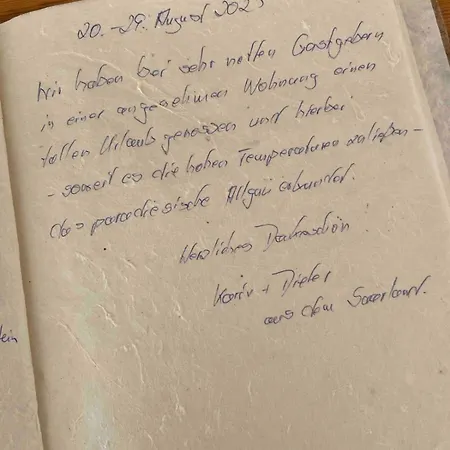 20. - 29. August 2023
Wir haben bei sehr netten Gastgebern
in einer angenehmen Wohnung einen
tollen Urlaub genossen und hierbei
- soweit es die hohen Temperaturen zuließen -
das paradiesische Allgäu erkundet.
Herzliches Dankeschön!
Karin + Dieter
aus dem Saarland.